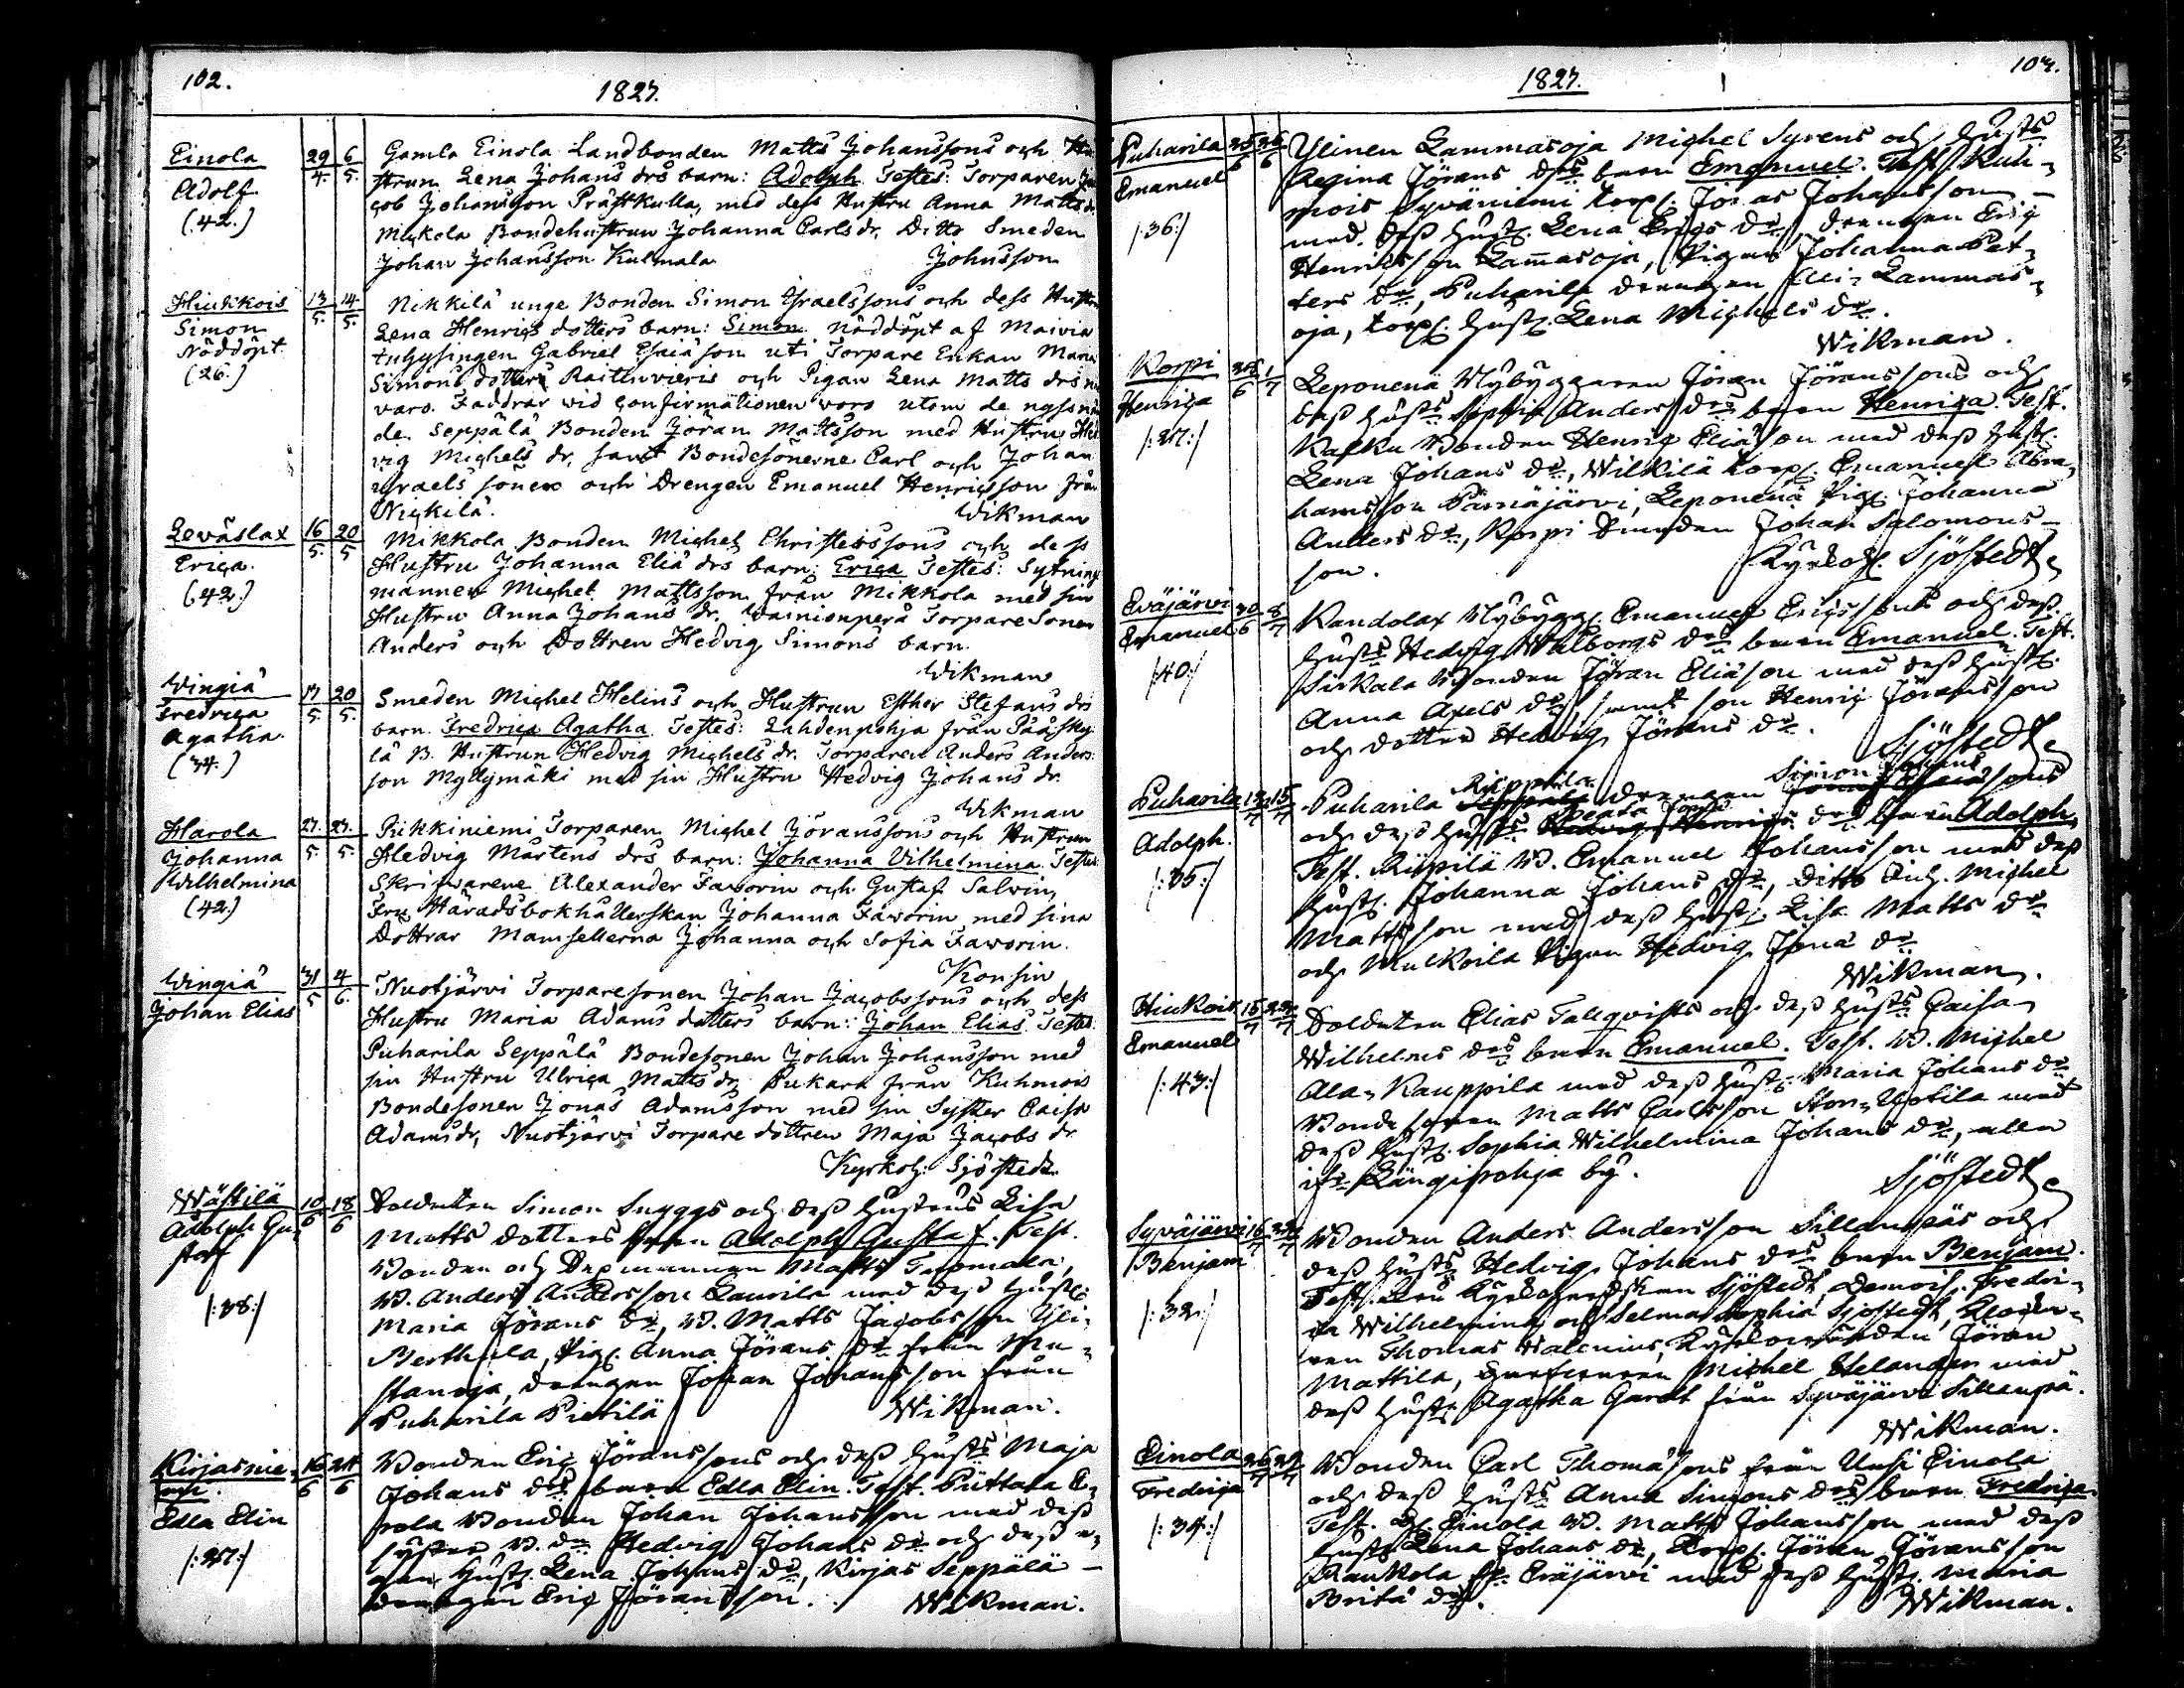 102.
1827.
Einola 29/4. 6/5. Gamla Einola Landbonden Matts Johanssons och Hu
Adolf strun Lena Johans drs barn: Adolph Testes: Torparen Ja
(42.) cob Johansson Prästkulla, med dess Hustru Anna Matts dr
Mickola Bondehustrun Johanna Carlsdr, Ditto Smeden
Johan Johansson Kulmala Johnsson
Hiukkois 13/5. 14/5. Nikkilä unge Bonden Simon Israelssons och dess Hustru
Simon Lena Henrics dotters barn: Simon nöddöpt af
Nöddöpt Gabriel Esaiæson uti Torpare Enkan Maria
(26.) Simons dotters och Pigan Lena Matts drs
varo. Faddrar vid Confirmationen voro utom de
de Seppälä Bonden Jöran Mattsson med Hustru Hed
vig Michels dr, samt Bondesönerne Carl och Johan
Israels söner och Drengen Emanuel Henricsson från
Nickilä. Wikman
Leväslax 16/5. 20/5 Mikkola Bonden Michel Christerssons och dess
Erica. Hustru Johanna Eliæ drs barn: Erica Testes: Sytning
(42.) mannen Michel Mattsson från Mikkola med sin
Hustru Anna Johans dr. Wainionperä Torpare Sonen
Anders och Dottren Hedvig Simons barn.
Wikman
Wingiä 17/5. 20/5. Smeden Michel Helins och Hustrun Esther Stefans drs
Fredrica barn. Fredrica Agatha Testes: Lahdenpohja från Pääsky
Agatha. lä B. Hustrun Hedvig Michels dr. Torparen Anders Anders:
(34.) son Myllymäki med sin Hustru Hedvig Johans dr.
Wikman
Harola 27./5. 27./5. Pikkiniemi Torparen Michel Jöranssons och Hustrun
Johanna Hedvig Mårtens drs barn: Johanna Vilhelmina Testes:
Wilhelmina Skrifvarene Alexander Faworin och Gustaf Salvin,
(42.) Fru Häradsbokhållerskan Johanna Faworin med sina
Dottrar Mamsellerna Johanna och Sofia Faworin.
Konsin
Wingiä 31/5 4/6. Nuotjärvi Torparesonen Johan Jacobssons och dess
Johan Elias Hustru Maria Adams dotters barn: Johan Elias Testes
Puharila Seppälä Bondesonen Johan Johansson med
sin Hustru Ulrica Matts dr, Pukara från Kuhmois
Bondesonen Jonas Adamsson med sin Syster Caisa
Adamsdr, Nuotjärvi Torpare dottren Maja Jacobs dr
Kyrkoh: Sjöstedt.
Wästilä 10/6 18/6 Soldaten Simon Snyggs och dess hustrus Lisa
Adolph Gu- Matts dotters barn Adolph Gustaf. Test.
staf Bonden och Matts Tuomala,
/:38:/ B. Anders Andersson Laurila med dess hustr:
Maria Jörans dr, B. Matts Jacobsson Yli-
Berthula, Pig. Anna Jörans dr från Mu-
stanoja, drengen Johan Johansson från
Puharila Pietilä Wikman.
Kirjasnie- 16/6 24/6 Bonden Eric Jöranssons och dess hust:s Maja
Johans drs barn Edla Elin. Test. Püttala E-
Edla Elin rola Bonden Johan Johansson med dess
/:27:/ syster B. dr Hedvig Johans dr och dess e-
gen hust. Lena Johans dr, Kirjas Seppälä
drengen Eric Jöransson. Wikman.
1827.
103.
Puharila 25/6 26/6 Ylinen Lammasoja Michel Syrens och hust:s
Emanuel Regina Jörans drs barn Emanuel. Test. Kuh-
/:36:/ mois Syväniemi torp. Jonas Johansson
med dess hust. Lena Erics dr, drengen Eric
Henricsson Lammasoja, Pigan Johanna Pet-
ters dr, Puharila drengen Lammas-
oja, torp. hust. Lena Michels dr.
Wikman.
Korpi 28/6 1/7 Leponenä Nybyggaren Jöran Jöranssons och
Henrica dess hust:s Sophia Anders drs barn Henrica. Test.
/:27:/ Kalku Bonden Henric Eliæson med dess hust.
Lena Johans dr, Wilkilä torp. Emanuel Abra-
hamsson Pärnäjärvi, Leponenä Pig. Johanna
Anders dr, Korpi Bonden Johan Salomons-
son. Kyrkoh. Sjöstedt
Eväjärvi 30/6 8/7 Randolax Nybygg. Emanuel Ericssons och dess
Emanuel hust:s Hedvig Walborgs drs barn Emanuel. Test.
/:40:/ Sirkala Bonden Jöran Eliæson med dess hust.
Anna Axels dr samt son Henric Jöransson
och dotter Hedvig Jörans dr.
Sjöstedt
Puharila 13/7 15/7 Puharila Rüppilä drengen Simon
Adolph. och dess hust:s Beata drs barn Adolph.
/:35:/ Test. Rüppilä B. Emanuel Johansson med dess
hust. Johanna Johans dr, ditto Michel
Mattsson med dess hust. Lisa Matts dr
och Mulkoila Pigan Hedvig Jonæ dr
Wikman.
Hiukois 15/7 22/7 Soldaten Elias Tallqvists och dess hust:s Caisa
Emanuel Wilhelms drs barn Emanuel. Test. B. Michel
/:43:/ Ala-Kauppila med dess hust. Maria Johans dr
Bondesonen Matts Carlsson Stor-Uotila med
dess hust. Sophia Wilhelmina Johans dr, alla
ifr. Längipohja by.
Sjöstedt
Syväjärvi 16/7 22/7 Bonden Anders Andersson Sillanpääs och
Benjam dess hust:s Hedvig Johans drs barn Benjam.
/:32:/ Test. Fru Kyrkoherdskan Sjöstedt, Demois. Fredri-
ca Wilhelmina och Selma Sophia Sjöstedt, Klocka-
ren Thomas Walenius, Kyrkovärden Jöran
Mattila, Michel Helander med
dess hust. Agatha Gardt från Syväjärvi Sillanpä.
Wikman.
Einola 26/7 29/7 Bonden Carl Thomæsons från Uusi Einola
Fredrica och dess hust:s Anna Simons drs barn Fredrica.
/:34:/ Test. Einola B. Matts Johansson med dess
hust. Lena Johans dr, Torp. Jöran Jöransson
Raukola fr. Eräjärvi med dess hust. Maria
Britä dr. Wikman.